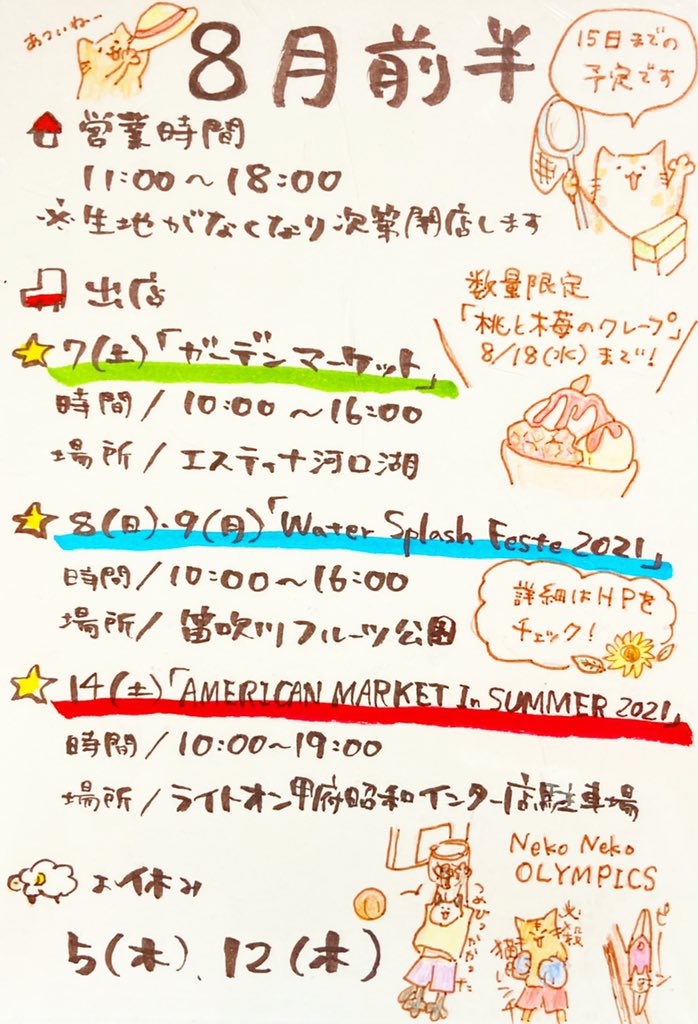 あついねー
8月前半
15日までの
予定です
営業時間
11:00〜18:00
※生地がなくなり次第閉店します
出店
数量限定
「桃と苺のクレープ」
8/18(水)まで!
7(土)「ガーデンマーケット」
時間/10:00〜16:00
場所/エスティナ河口湖
8(日)・9(月)「Water Splash Feste 2021」
時間/10:00〜16:00
場所/笛吹川フルーツ公園
詳細はHPを
チェック!
14(土)「AMERICAN MARKET In SUMMER 2021」
時間/10:00〜19:00
場所/ライトオン甲府昭和インター店駐車場
お休み
5(木)、12(木)
Neko Neko
OLYMPICS
つめひっかかった
必殺
ピーン